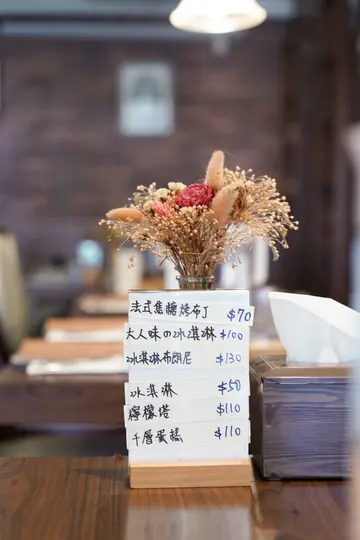 法式焦糖烤布丁 $70
大人味の冰淇淋 $100
冰淇淋布朗尼 $130
冰淇淋 $50
檸檬塔 $110
千層蛋糕 $110